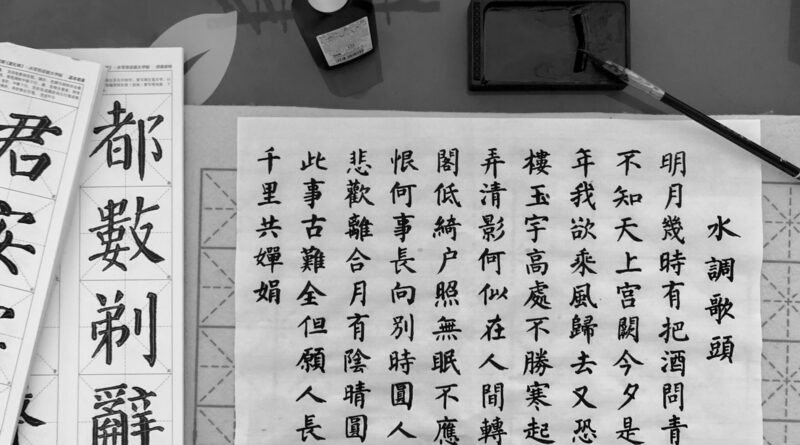 水調歌頭
明月幾時有把酒問青
不知天上宫闕今夕是
年我欲乘風歸去又恐
樓玉宇高處不勝寒起
弄清影何似在人間轉
閣低綺户照無眠不應
恨何事長向别時圓人
悲歡離合月有陰晴圓
此事古難全但願人長
千里共嬋娟
都數剃辭
君安